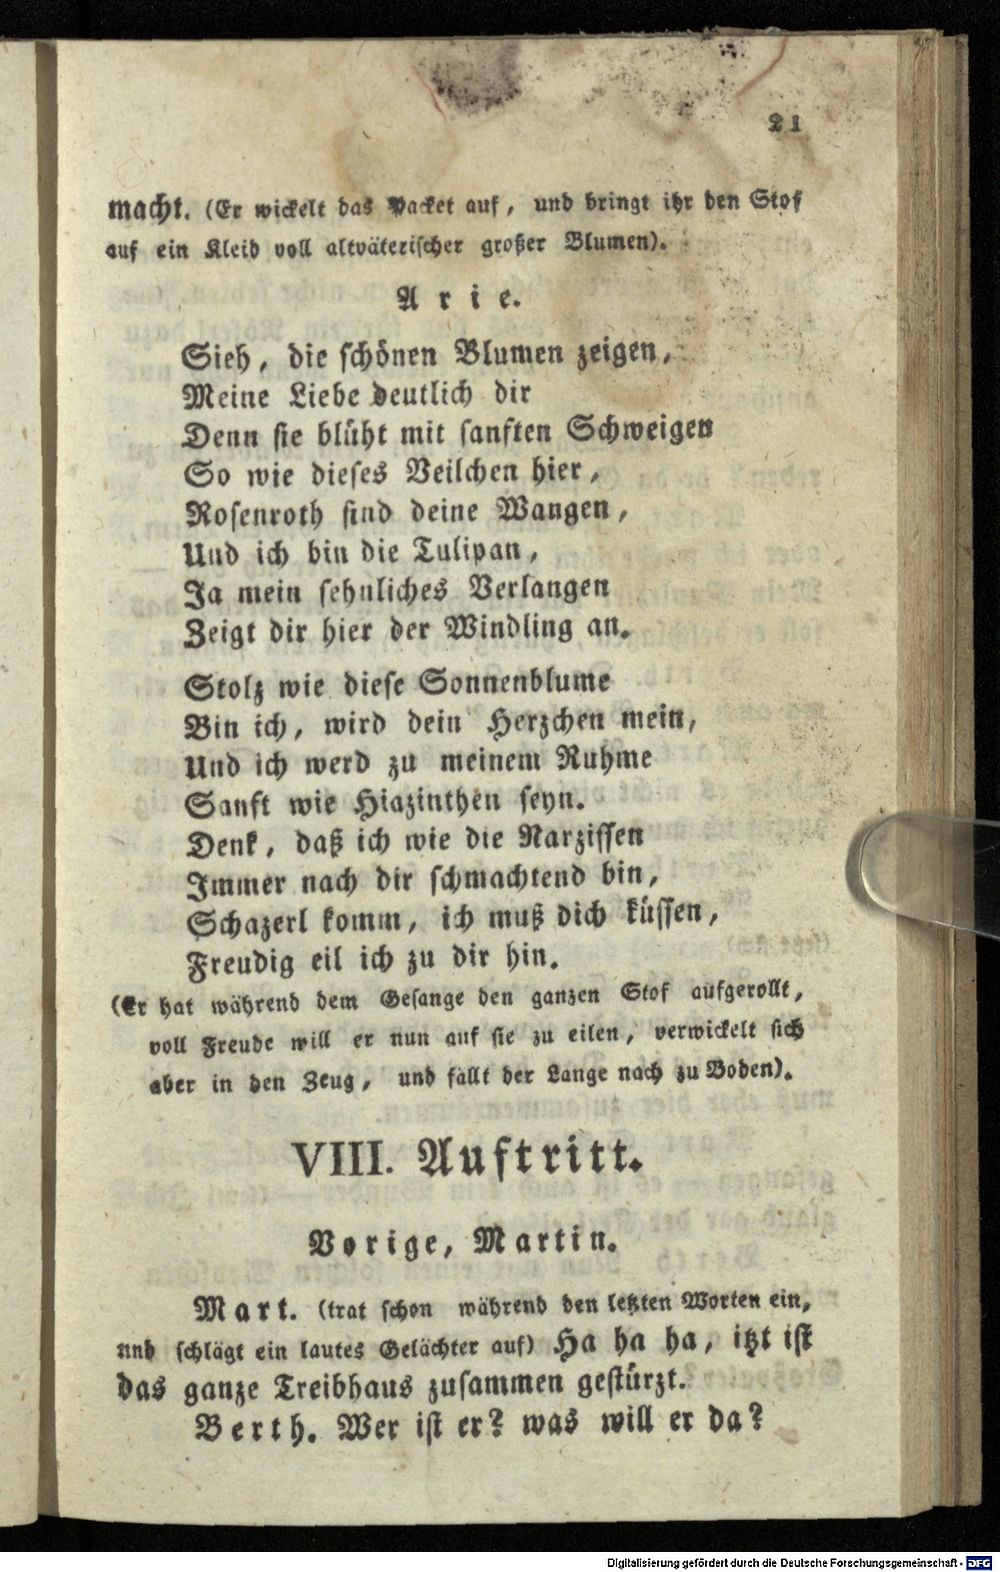 21
macht. (Er wickelt das Packet auf, und bringt ihr den Stof
auf ein Kleid voll altväterischer großer Blumen).
Arie.
Sieh, die schönen Blumen zeigen,
Meine Liebe deutlich dir
Denn sie blüht mit sanften Schweigen
So wie dieses Veilchen hier,
Rosenroth sind deine Wangen,
Und ich bin die Tulipan,
Ja mein sehnliches Verlangen
Zeigt dir hier der Windling an.
Stolz wie diese Sonnenblume
Bin ich, wird dein Herzchen mein,
Und ich werd zu meinem Ruhme
Sanft wie Hiazinthen seyn.
Denk, daß ich wie die Narzissen
Immer nach dir schmachtend bin,
Schazerl komm, ich muß dich küssen,
Freudig eil ich zu dir hin.
(Er hat während dem Gesange den ganzen Stof aufgerollt,
voll Freude will er nun auf sie zu eilen, verwickelt sich
aber in den Zeug, und fällt der Lange nach zu Boden).
VIII. Auftritt.
Vorige, Martin.
Mart. (trat schon während den letzten Worten ein,
nnd schlägt ein lautes Gelächter auf) Ha ha ha, itzt ist
das ganze Treibhaus zusammen gestürzt.
Berth. Wer ist er? was will er da?
Digitalisierung gefördert durch die Deutsche Forschungsgemeinschaft - DFG